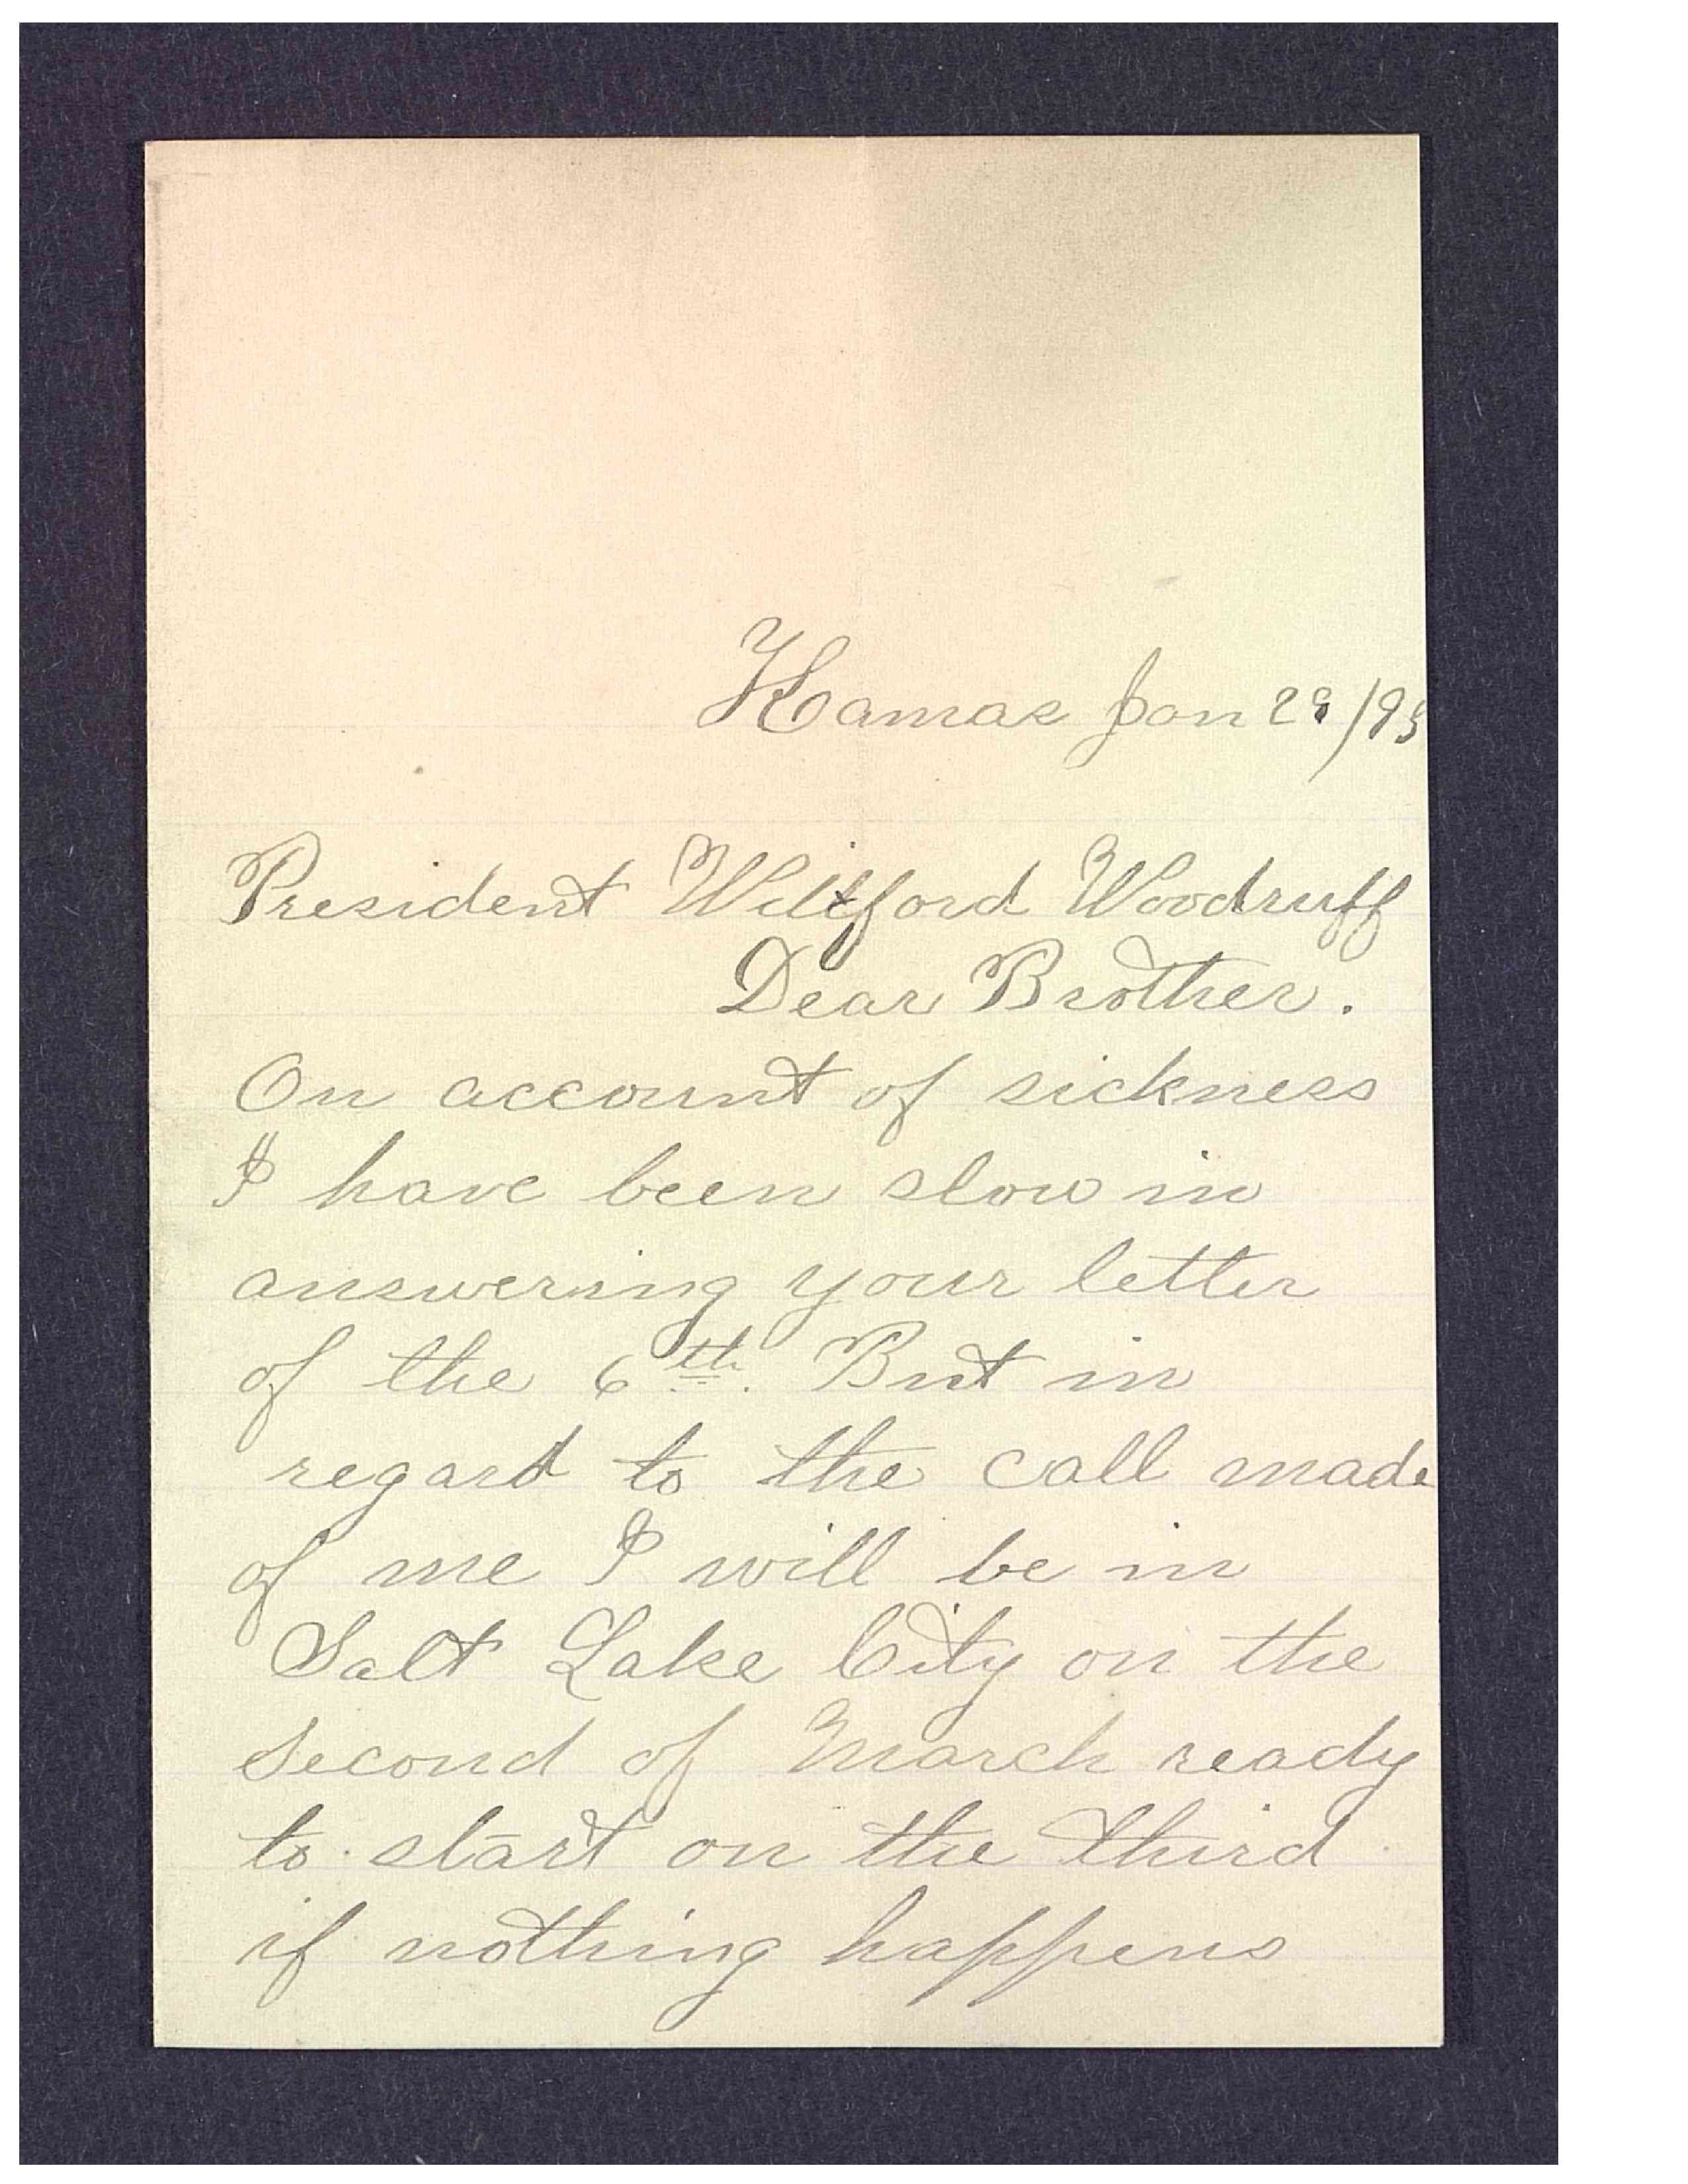 Kamas Jan 29/95
President Willford Woodruff
Dear Brother.
On account of sickness
I have been slow in
answering your letter
of the 6th. But in
regard to the call made
of me I will be in
Salt Lake City on the
second of March ready
to start on the third
if nothing happens